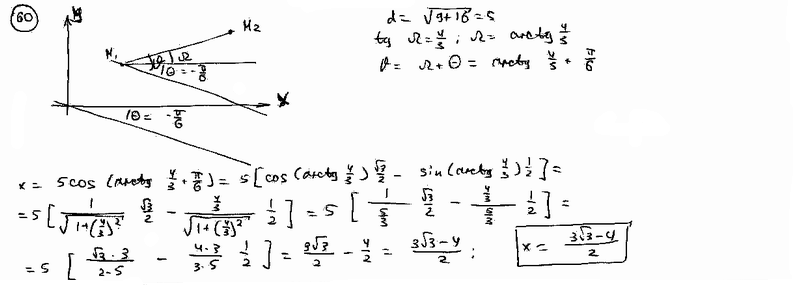 60
y
M₂
M₁
φ
Ω
θ = -π/6
x
θ = -π/6
d = √(9+16) = 5
tg Ω = 4/3 ; Ω = arctg 4/3
φ = Ω + θ = arctg 4/3 + π/6
x = 5 cos (arctg 4/3 + π/6) = 5 [cos (arctg 4/3) √3/2 - sin (arctg 4/3) 1/2] =
= 5 [1/√(1+(4/3)²) √3/2 - (4/3)/√(1+(4/3)²) 1/2] = 5 [1/(5/3) √3/2 - (4/3)/(5/3) 1/2] =
= 5 [(√3·3)/(2·5) - (4·3)/(3·5) 1/2] = 3√3/2 - 4/2 = (3√3-4)/2 ; x = (3√3-4)/2